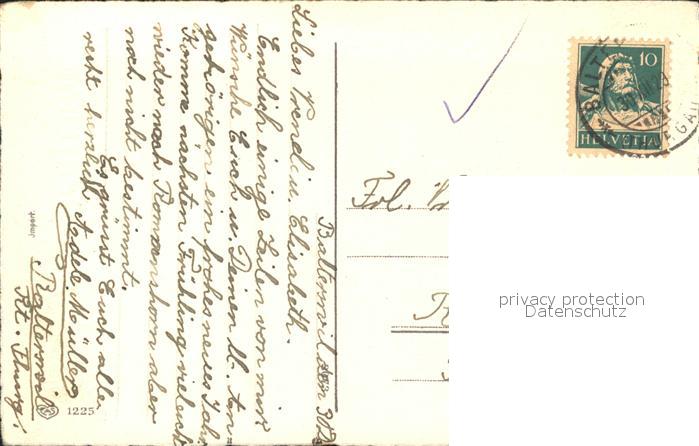 Balterswil den 30.
Liebes Vreneli u. Elisabeth.
Endlich einige Zeilen von mir
Wünsche Euch u. Deinen lb. An-
gehörigen ein frohes neues Jahr
Komme nächsten Frühling vieleicht
wieder nach Romanshorn aber
noch nicht bestimmt.
Es grüsst Euch alle
recht herzlich Adele Müller
Balterswil
Kt. Thurg.
Import.
1225
Frl.
10
HELVETIA
BALT
privacy protection
Datenschutz